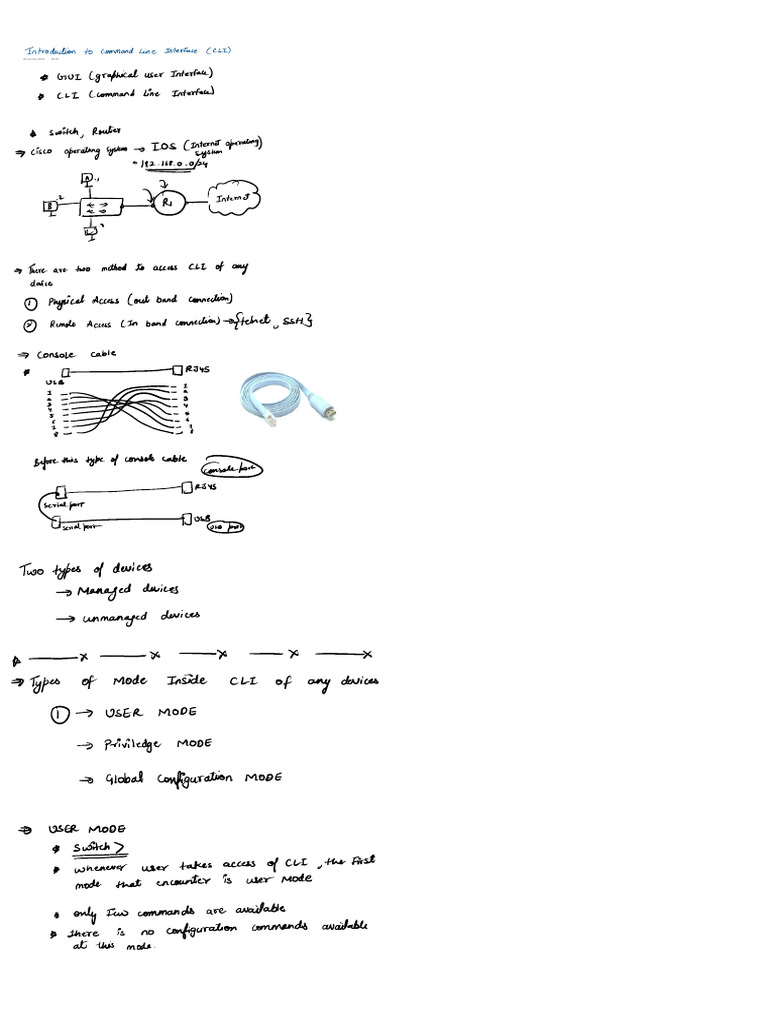 Introduction to Command Line Interface (CLI)
GUI (graphical user Interface)
CLI (command Line Interface)
Switch, Router
⇒ Cisco operating System → IOS (Internet operating System)
192.168.0.0/24
A
.1
B
.2
R1
Internet
⇒ There are two method to access CLI of any
device
① Physical Access (out band connection)
② Remote Access (In band connection) → {telnet, SSH}
⇒ Console Cable
RJ45
USB
1 1
2 2
3 3
4 4
5 5
6 6
7 7
8 8
Before this type of console cable
Console port
RJ45
Serial port
USB
Serial port
USB port
Two types of devices
→ Managed devices
→ unmanaged devices
⇒ Types of Mode Inside CLI of any devices
① → USER MODE
→ Priviledge MODE
→ Global Configuration MODE
⇒ USER MODE
Switch>
whenever user takes access of CLI, the first
mode that encounter is user Mode
only few commands are available
there is no configuration commands available
at this mode.